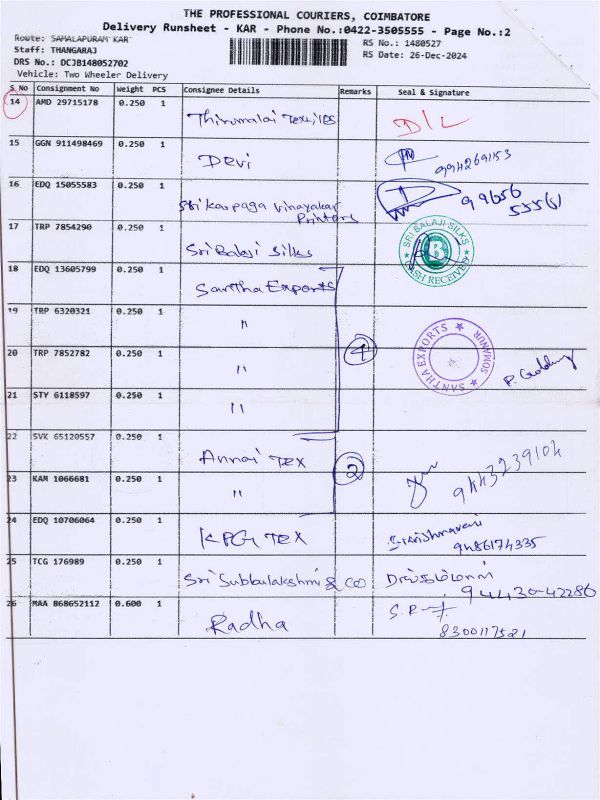 THE PROFESSIONAL COURIERS, COIMBATORE
Delivery Runsheet - KAR - Phone No.:0422-3505555 - Page No.:2
Route: SAMALAPURAM KAR
RS No.: 1480527
Staff: THANGARAJ
RS Date: 26-Dec-2024
DRS No.: DCJB148052702
Vehicle: Two Wheeler Delivery
S No Consignment No Weight PCS Consignee Details Remarks Seal & Signature
14 AMD 29715178 0.250 1 Thirumalai Textiles D/L
15 GGN 911498469 0.250 1 Devi 9942691153
16 EDQ 15055583 0.250 1 Sri Karpaga Vinayakar Printers 99656 55561
17 TRP 7854290 0.250 1 Sri Balaji Silks SRI BALAJI SILKS B CASH RECEIVED
18 EDQ 13605799 0.250 1 Santha Exports
19 TRP 6320321 0.250 1 "
20 TRP 7852782 0.250 1 " 4 SANTHA EXPORTS SOMANUR
21 STY 6118597 0.250 1 "
22 SVK 65120557 0.250 1 Annai Tex 2 9443239104
23 KAM 1066681 0.250 1 "
24 EDQ 10706064 0.250 1 KPG TEX 9486174335
25 TCG 176989 0.250 1 Sri Subbulakshmi & CO 94430-42286
26 MAA 868652112 0.600 1 Radha 8300117521